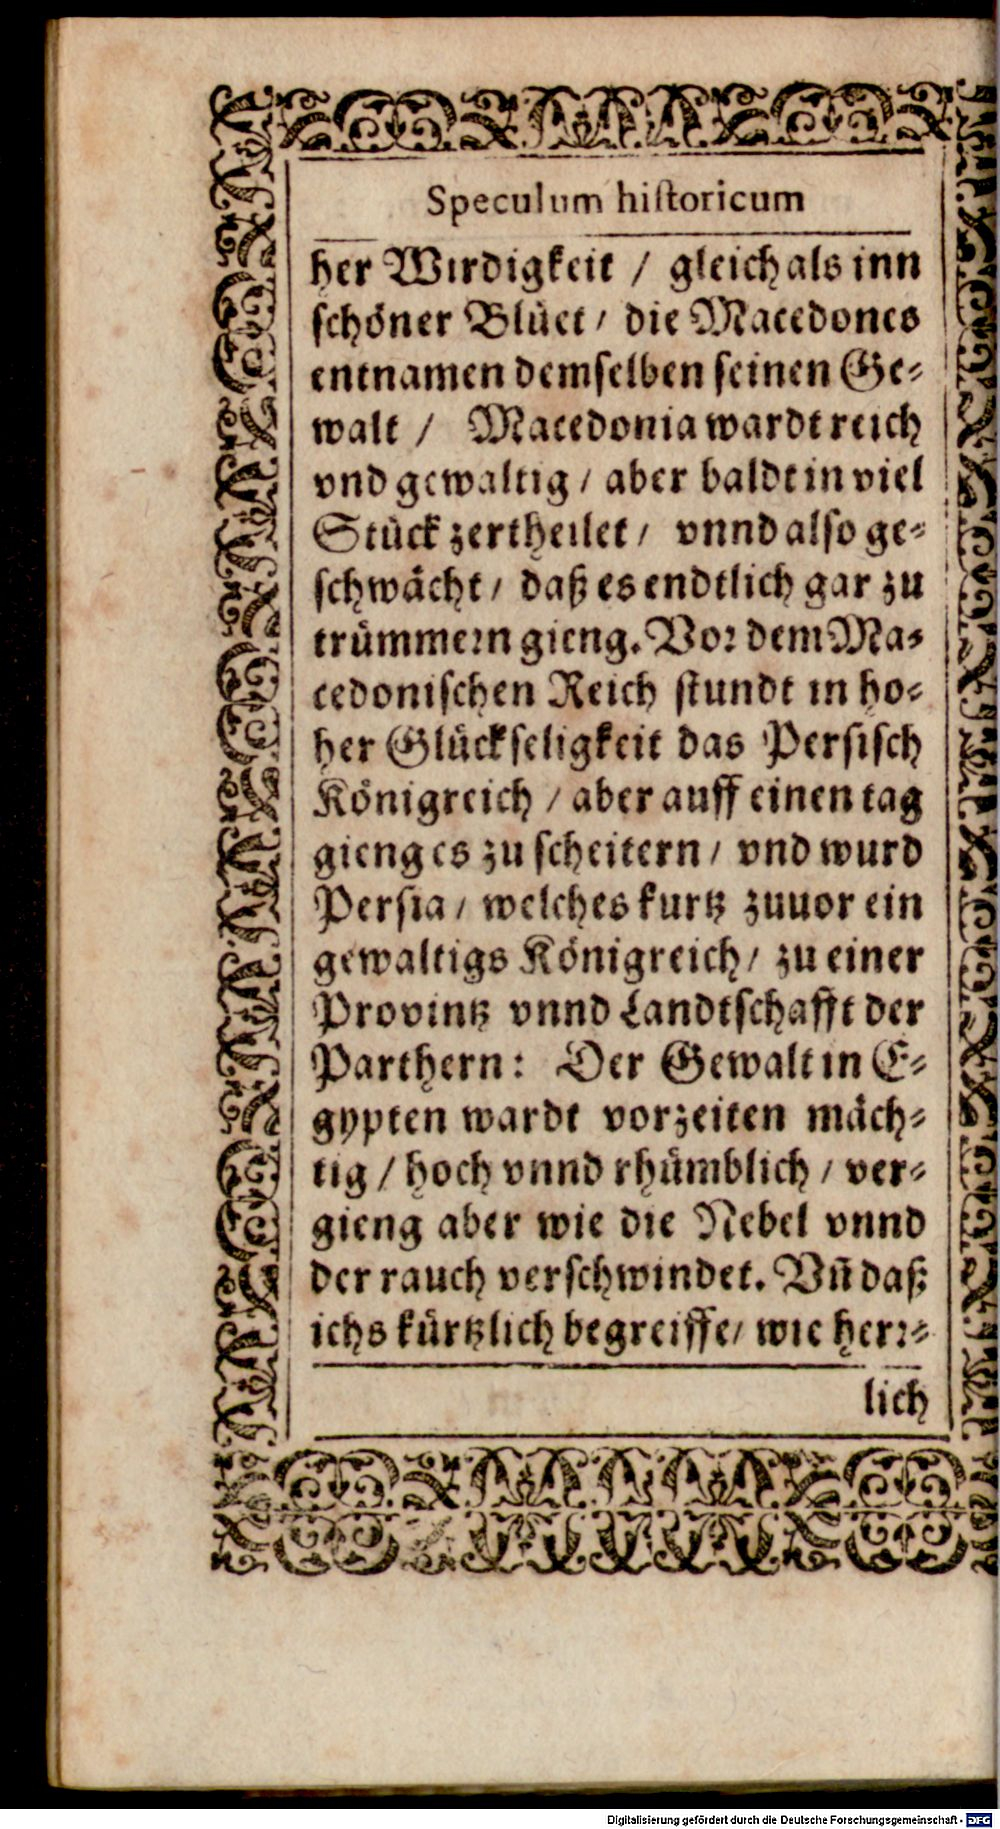 Speculum historicum
her Wirdigkeit / gleich als inn
schöner Blüet / die Macedones
entnamen demselben seinen Ge-
walt / Macedonia wardt reich
vnd gewaltig / aber baldt in viel
Stück zertheilet / vnnd also ge-
schwächt / daß es endtlich gar zu
trümmern gieng. Vor dem Ma-
cedonischen Reich stundt in ho-
her Glückseligkeit das Persisch
Königreich / aber auff einen tag
gieng es zu scheitern / vnd wurd
Persia / welches kurtz zuuor ein
gewaltigs Königreich / zu einer
Provintz vnnd Landtschafft der
Parthern: Der Gewalt in E-
gypten wardt vorzeiten mäch-
tig / hoch vnnd rhümblich / ver-
gieng aber wie die Nebel vnnd
der rauch verschwindet. Vñ daß
ichs kürtzlich begreiffe / wie herr-
lich
Digitalisierung gefördert durch die Deutsche Forschungsgemeinschaft - DFG